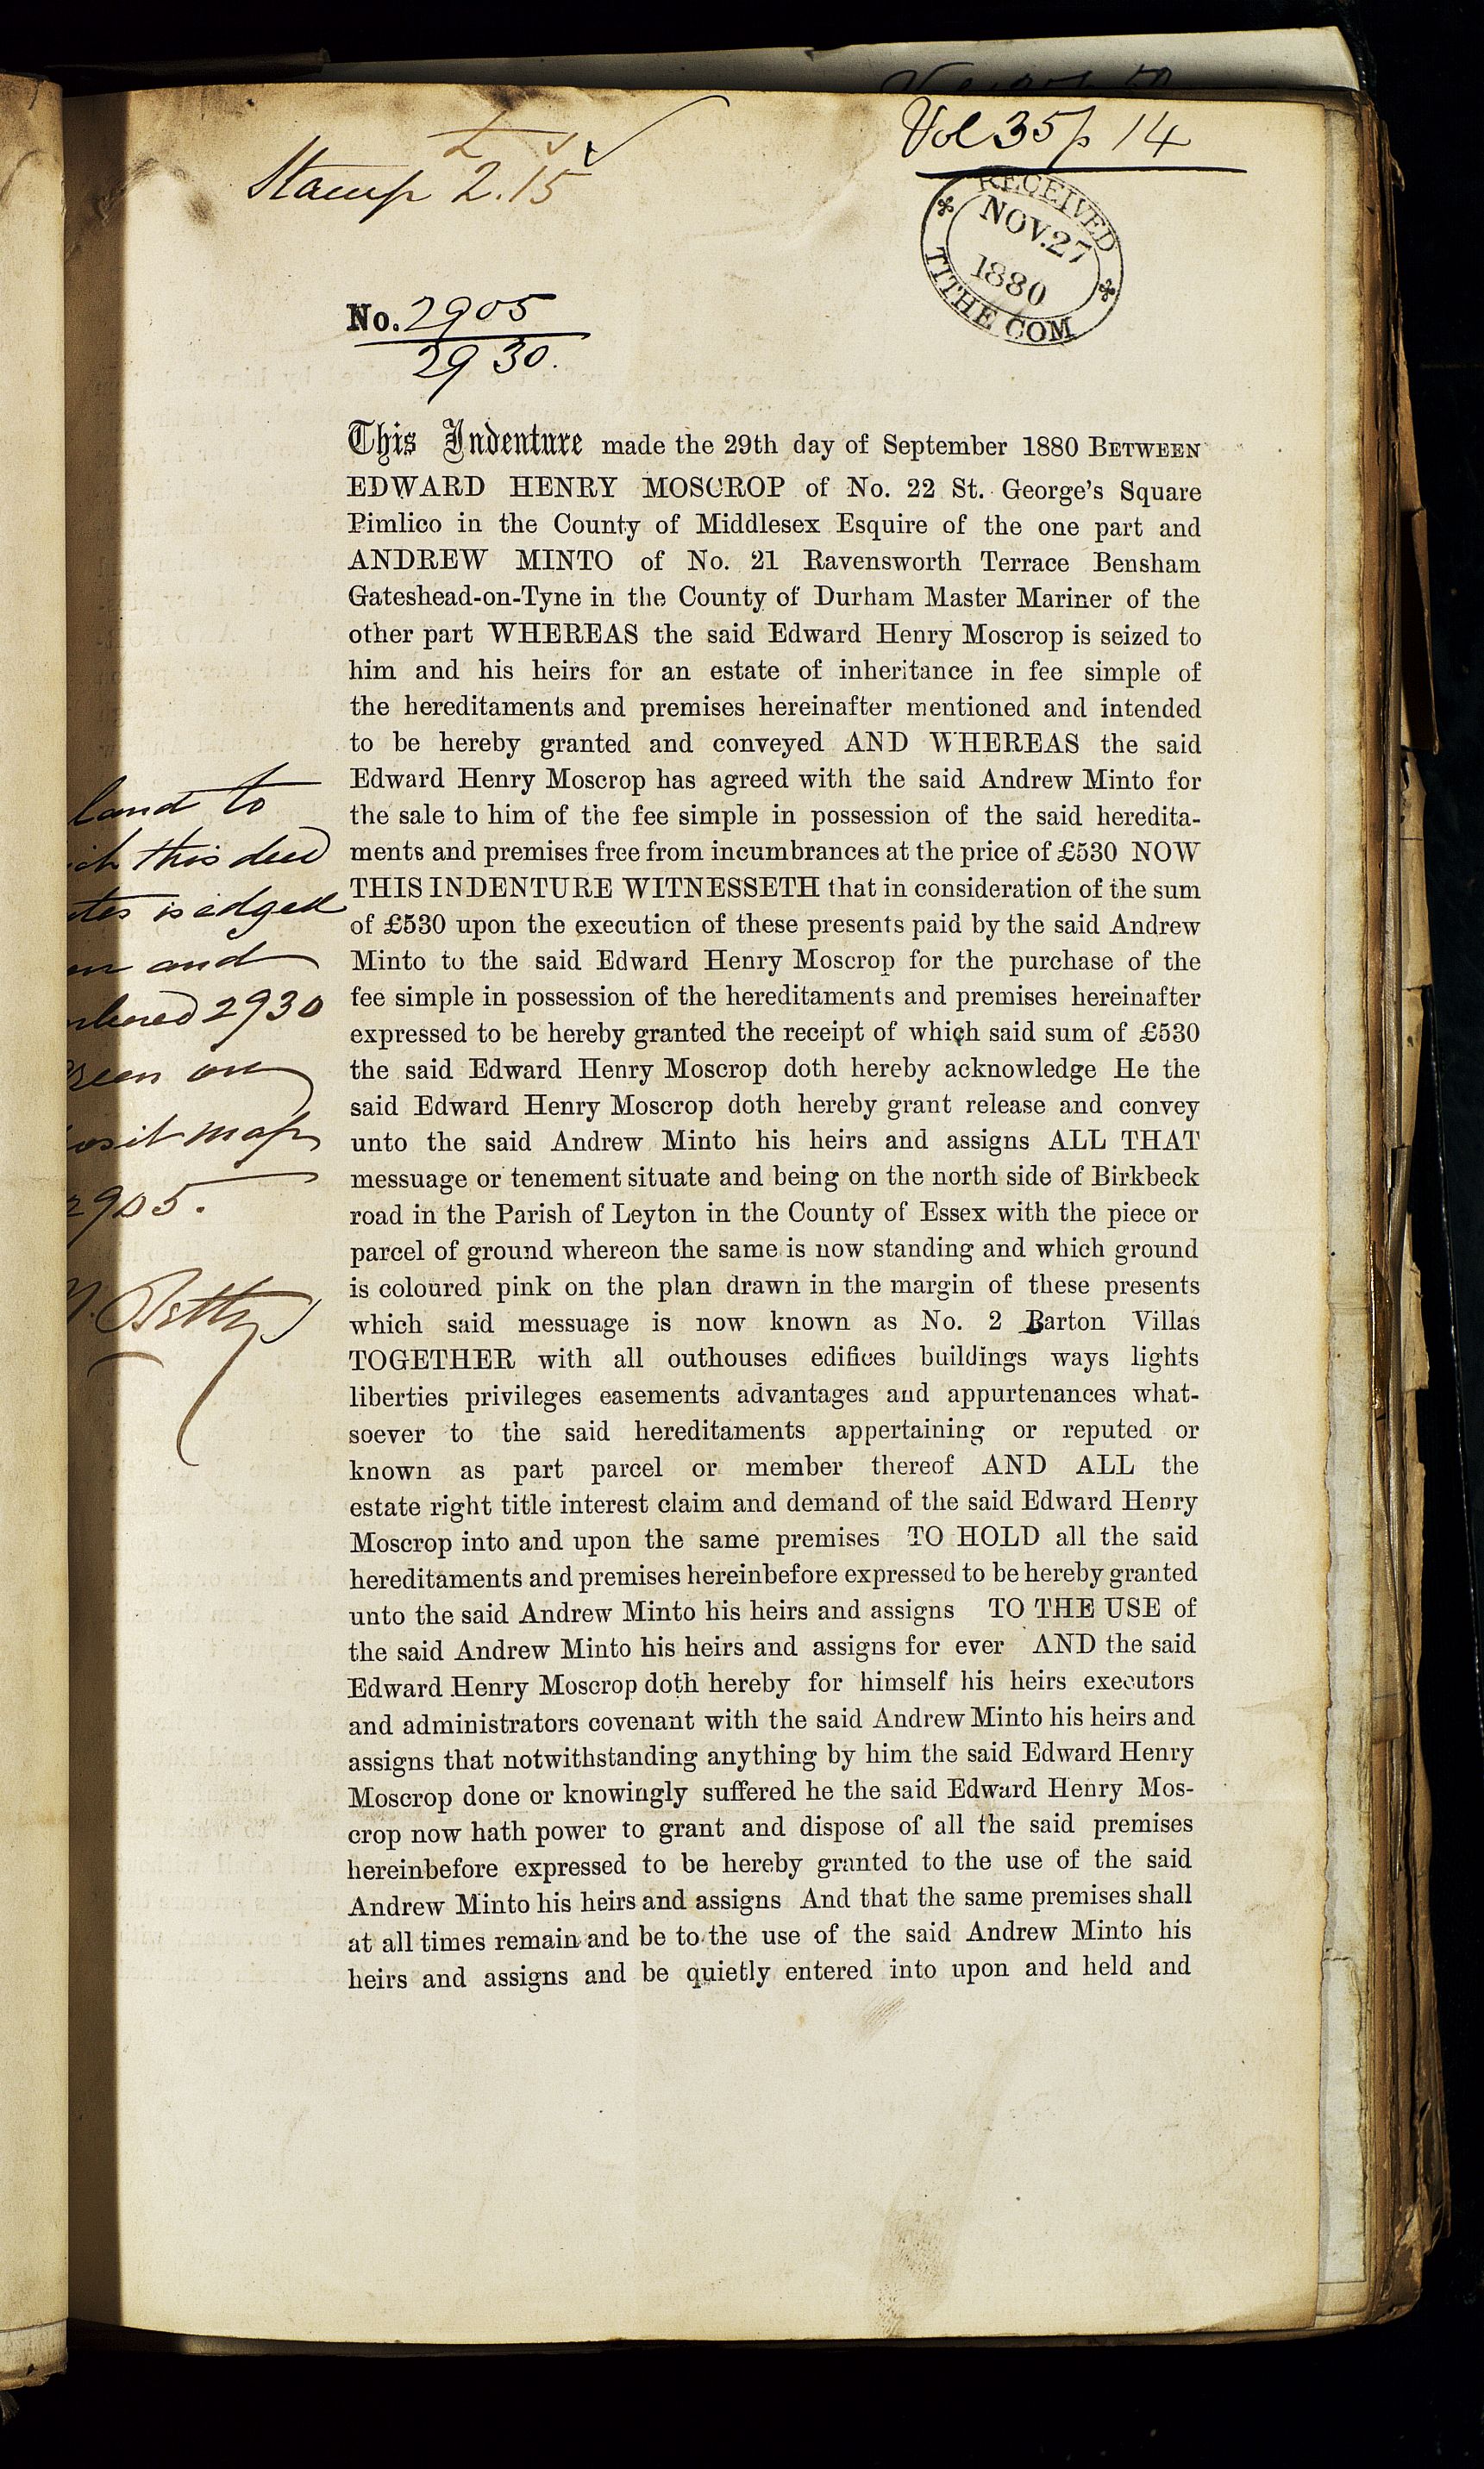 Vol 35 p 14
£
Stamp 2.15
RECEIVED
NOV. 27
1880
TITHE COM
No. 2905
2930.
This Indenture made the 29th day of September 1880 BETWEEN
EDWARD HENRY MOSCROP of No. 22 St. George's Square
Pimlico in the County of Middlesex Esquire of the one part and
ANDREW MINTO of No. 21 Ravensworth Terrace Bensham
Gateshead-on-Tyne in the County of Durham Master Mariner of the
other part WHEREAS the said Edward Henry Moscrop is seized to
him and his heirs for an estate of inheritance in fee simple of
the hereditaments and premises hereinafter mentioned and intended
to be hereby granted and conveyed AND WHEREAS the said
Edward Henry Moscrop has agreed with the said Andrew Minto for
the sale to him of the fee simple in possession of the said heredita-
ments and premises free from incumbrances at the price of £530 NOW
THIS INDENTURE WITNESSETH that in consideration of the sum
of £530 upon the execution of these presents paid by the said Andrew
Minto to the said Edward Henry Moscrop for the purchase of the
fee simple in possession of the hereditaments and premises hereinafter
expressed to be hereby granted the receipt of which said sum of £530
the said Edward Henry Moscrop doth hereby acknowledge He the
said Edward Henry Moscrop doth hereby grant release and convey
unto the said Andrew Minto his heirs and assigns ALL THAT
messuage or tenement situate and being on the north side of Birkbeck
road in the Parish of Leyton in the County of Essex with the piece or
parcel of ground whereon the same is now standing and which ground
is coloured pink on the plan drawn in the margin of these presents
which said messuage is now known as No. 2 Barton Villas
TOGETHER with all outhouses edifices buildings ways lights
liberties privileges easements advantages and appurtenances what-
soever to the said hereditaments appertaining or reputed or
known as part parcel or member thereof AND ALL the
estate right title interest claim and demand of the said Edward Henry
Moscrop into and upon the same premises TO HOLD all the said
hereditaments and premises hereinbefore expressed to be hereby granted
unto the said Andrew Minto his heirs and assigns TO THE USE of
the said Andrew Minto his heirs and assigns for ever AND the said
Edward Henry Moscrop doth hereby for himself his heirs executors
and administrators covenant with the said Andrew Minto his heirs and
assigns that notwithstanding anything by him the said Edward Henry
Moscrop done or knowingly suffered he the said Edward Henry Mos-
crop now hath power to grant and dispose of all the said premises
hereinbefore expressed to be hereby granted to the use of the said
Andrew Minto his heirs and assigns And that the same premises shall
at all times remain and be to the use of the said Andrew Minto his
heirs and assigns and be quietly entered into upon and held and
land to
this deed
is edged
and
2930
on
map
2905.